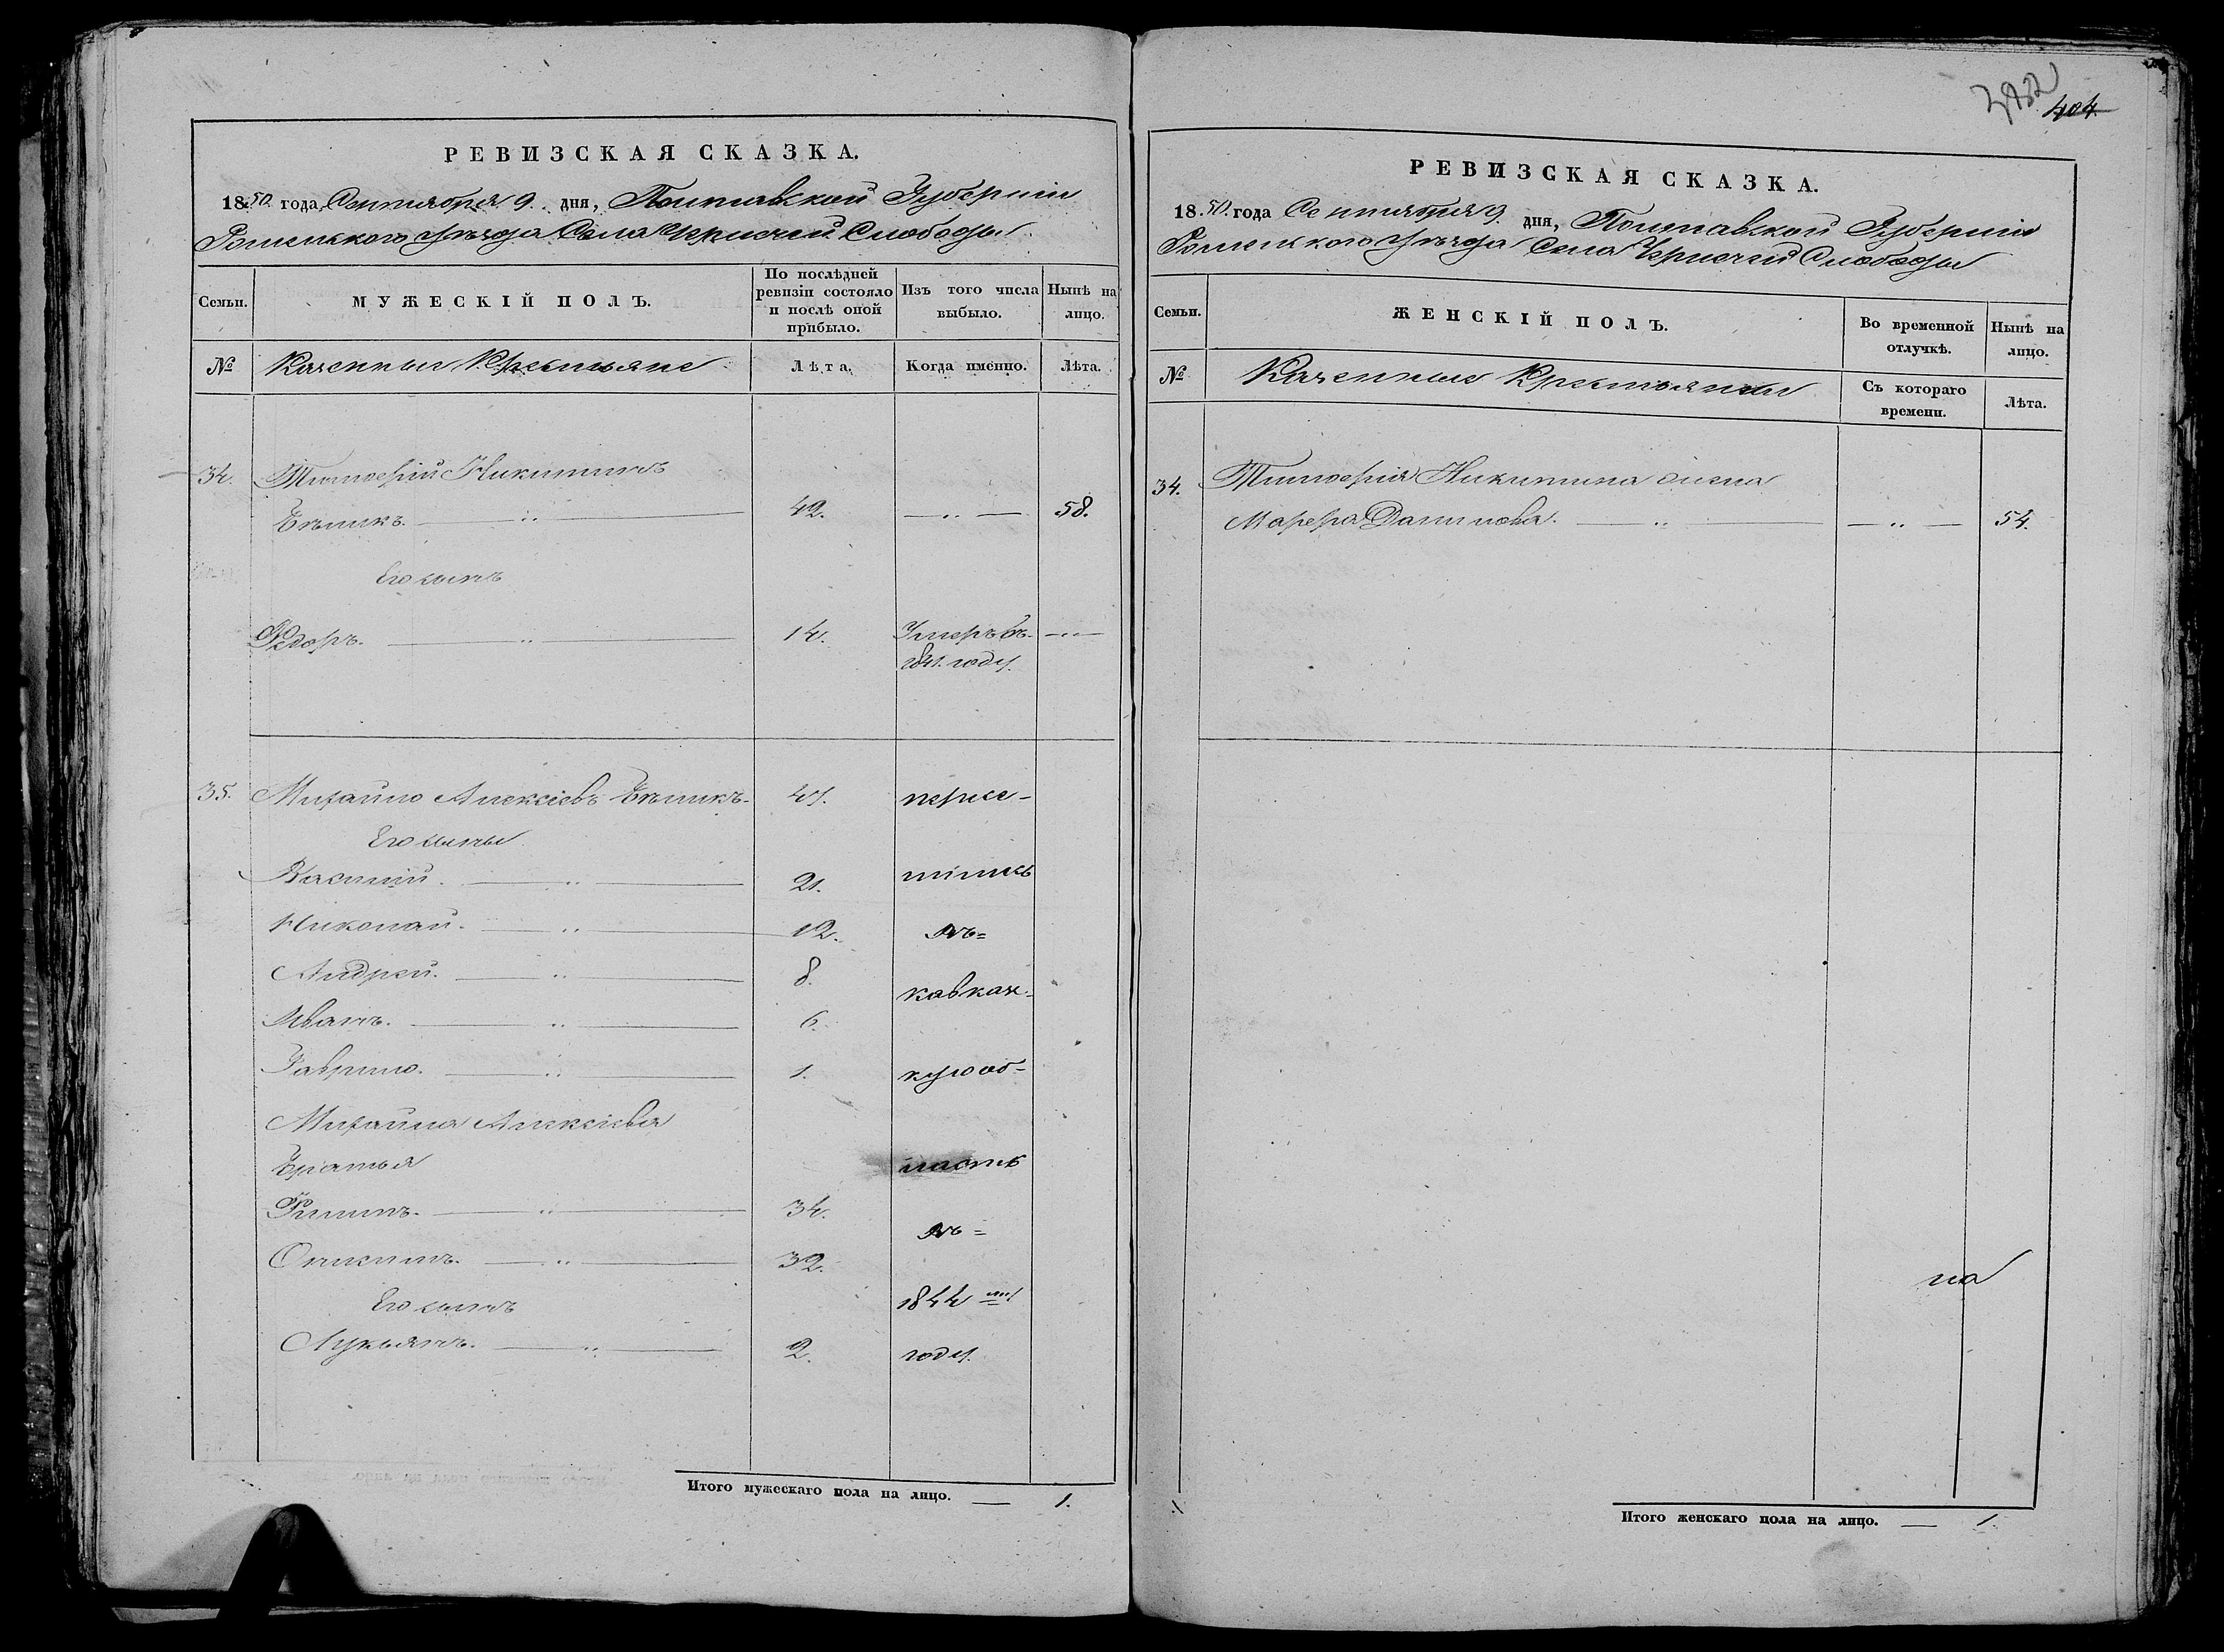 РЕВИЗСКАЯ СКАЗКА.
1850. года Сентября 9. дня, Полтавской Губерніи
Роменского Уѣзда Села Чернечей Слободы
Семьи.
МУЖЕСКІЙ ПОЛЪ.
По послѣдней ревизіи состояло и послѣ оной прибыло.
Изъ того числа выбыло.
Нынѣ на лицо.
№
Казенныи Крестьяне
Лѣта.
Когда именно.
Лѣта.
34. Тимофій Никитинъ
Бѣликъ. 42. 58.
Его сынъ
Федоръ. 14. Умеръ въ
1841. году.
35. Михайло Алексіевъ Бѣликъ 47. пересе-
Его сыны
Василій. 21. лились
Николай. 12. въ=
Андрей. 8. кавказ-
Иванъ. 6.
Гаврило. 1. кую об-
Михайла Алексіева
Братья ласть
Филипъ. 34. въ=
Онисимъ. 32.
Его сынъ 1844 мъ
Лукьянъ. 2. году.
Итого мужескаго пола на лицо. — 1.
404
РЕВИЗСКАЯ СКАЗКА.
1850. года Сентября 9 дня, Полтавской Губерніи
Роменского Уѣзда Села Чернечей Слободы
Семьи.
ЖЕНСКІЙ ПОЛЪ.
Во временной отлучкѣ.
Нынѣ на лицо.
№
Казенные Крестьянки
Съ котораго времени.
Лѣта.
34. Тимофія Никитина жена
Марфа Данилова. 54.
на
Итого женскаго пола на лицо. — 1.